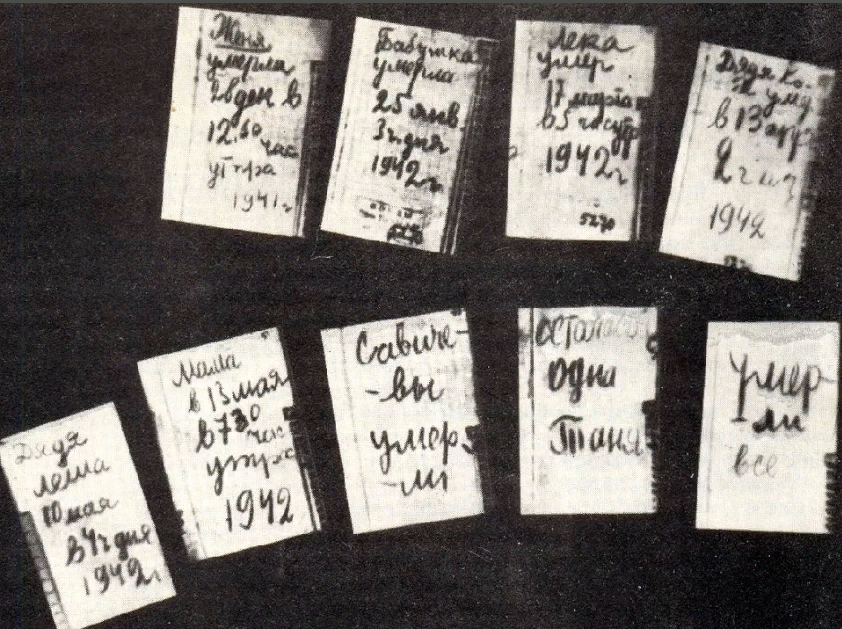 Женя
умерла
28 ден в
12.30
час
утра
1941 г
Бабушка
умерла
25 янв.
3 ч. дня
1942 г.
Лека
умер
17 марта
в 5 час утр
1942 г
5270
Дядя
умер
в 13 апр
2 ч
1942
Дядя
Леша
10 мая
в 4 ч дня
1942 г
Мама
в 13 мая
в 7 30
час
утра
1942
Савиче-
-вы
умер-
-ли
осталась
одна
Таня
умер-
-ли
все